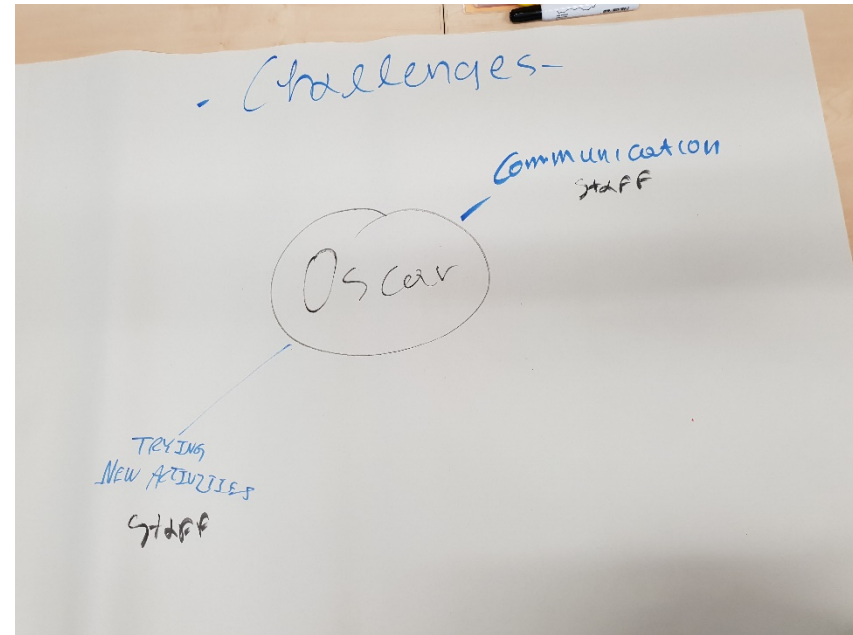 - Challenges-
Communication
Staff
Oscar
TRYING
NEW ACTIVITIES
Staff